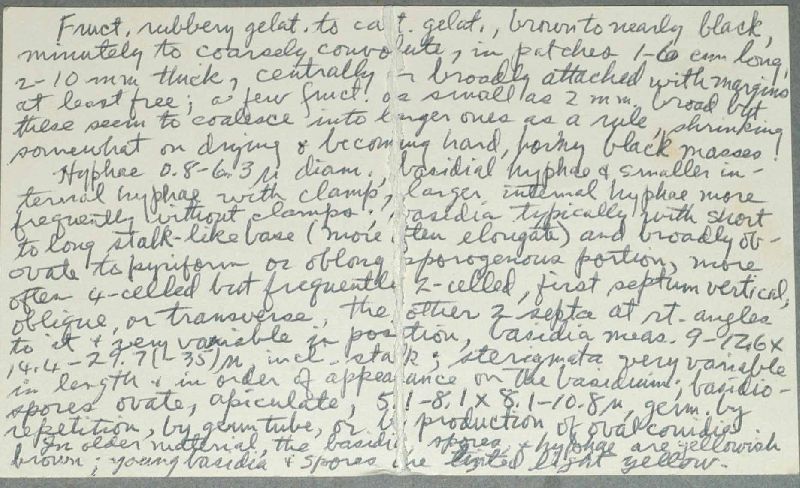 Fruct. rubbery gelat. to cart. gelat., brown to nearly black,
minutely to coarsely convolute, in patches 1-6 cm long,
2-10 mm thick, centrally or broadly attached with margins
at least free; a few fruct. as small as 2 mm. broad but
these seem to coalesce into larger ones as a rule, shrinking
somewhat on drying & becoming hard, horny black masses.
Hyphae 0.8-6.3 μ diam., basidial hyphae & smaller in-
ternal hyphae with clamps, larger internal hyphae more
frequently without clamps; basidia typically with short
to long stalk-like base (more often elongate) and broadly ob-
ovate to pyriform or oblong sporogenous portion, more
often 4-celled but frequently 2-celled, first septum vertical,
oblique, or transverse, the other 2 septa at rt. angles
to it & very variable in position, basidia meas. 9-12.6 x
14.4-29.7(-35) μ incl. stalk; sterigmata very variable
in length & in order of appearance on the basidium; basidio-
spores ovate, apiculate, 5.1-8.1 x 8.1-10.8 μ, germ. by
repetition, by germ tube, or by production of oval conidia.
In older material, the basidia, spores & hyphae are yellowish
brown; young basidia & spores are tinted light yellow.